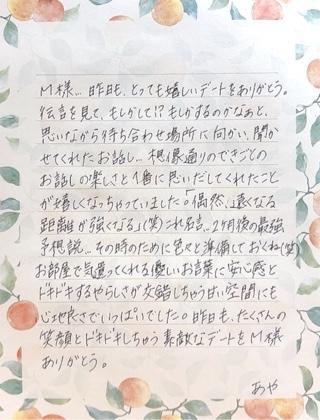 M様… 昨日も、とっても嬉しいデートをありがとう。
伝言を見て、もしかして!? もしかするのかなぁと、
思いながら待ち合わせ場所に向かい、聞か
せてくれたお話し… 想像通りのできごとの
お話しの楽しさと1番に思いだしてくれたこと
が嬉しくなっちゃっていました♡「偶然、遠くなる
距離が強くなる」(笑) これ名言… 2ヶ月後の最強
予想説… その時のために色々と準備しておくね(笑)
お部屋で気遣ってくれる優しいお言葉に安心感と
ドキドキするやらしさが交錯しちゃう甘い空間にも
心地良さでいっぱいでした。昨日も、たくさんの
笑顔とドキドキしちゃう素敵なデートをM様
ありがとう。
あや